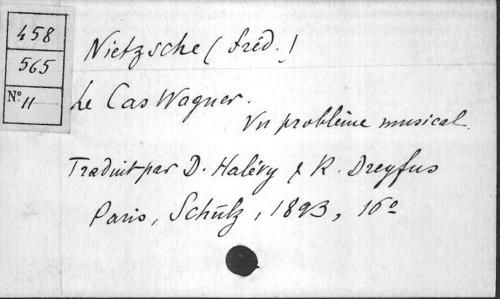 458
565
Nº 11
Nietzsche (Fréd.)
Le Cas Wagner.
Un problème musical.
Traduit par D. Halévy & R. Dreyfus
Paris, Schulz, 1893, 16º